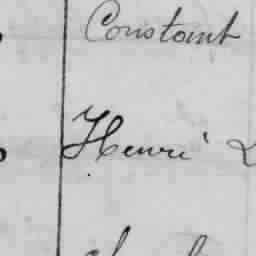 Constant
Henri